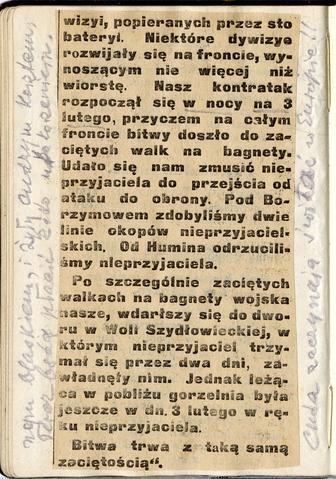 wizyi, popieranych przez sto
bateryi. Niektóre dywizye
rozwijały się na froncie, wy-
noszącym nie więcej niż
wiorstę. Nasz kontratak
rozpoczął się w nocy na 3
lutego, przyczem na całym
froncie bitwy doszło do za-
ciętych walk na bagnety.
Udało się nam zmusić nie-
przyjaciela do przejścia od
ataku do obrony. Pod Bo-
rzymowem zdobyliśmy dwie
linie okopów nieprzyjaciel-
skich. Od Humina odrzucili-
śmy nieprzyjaciela.
Po szczególnie zaciętych
walkach na bagnety wojska
nasze, wdarłszy się do dwo-
ru w Woli Szydłowieckiej, w
którym nieprzyjaciel trzy-
mał się przez dwa dni, za-
władnęły nim. Jednak leżą-
ca w pobliżu gorzelnia była
jeszcze w dn. 3 lutego w rę-
ku nieprzyjaciela.
Bitwa trwa z taką samą
zaciętością“.
Cuda zaczynają się